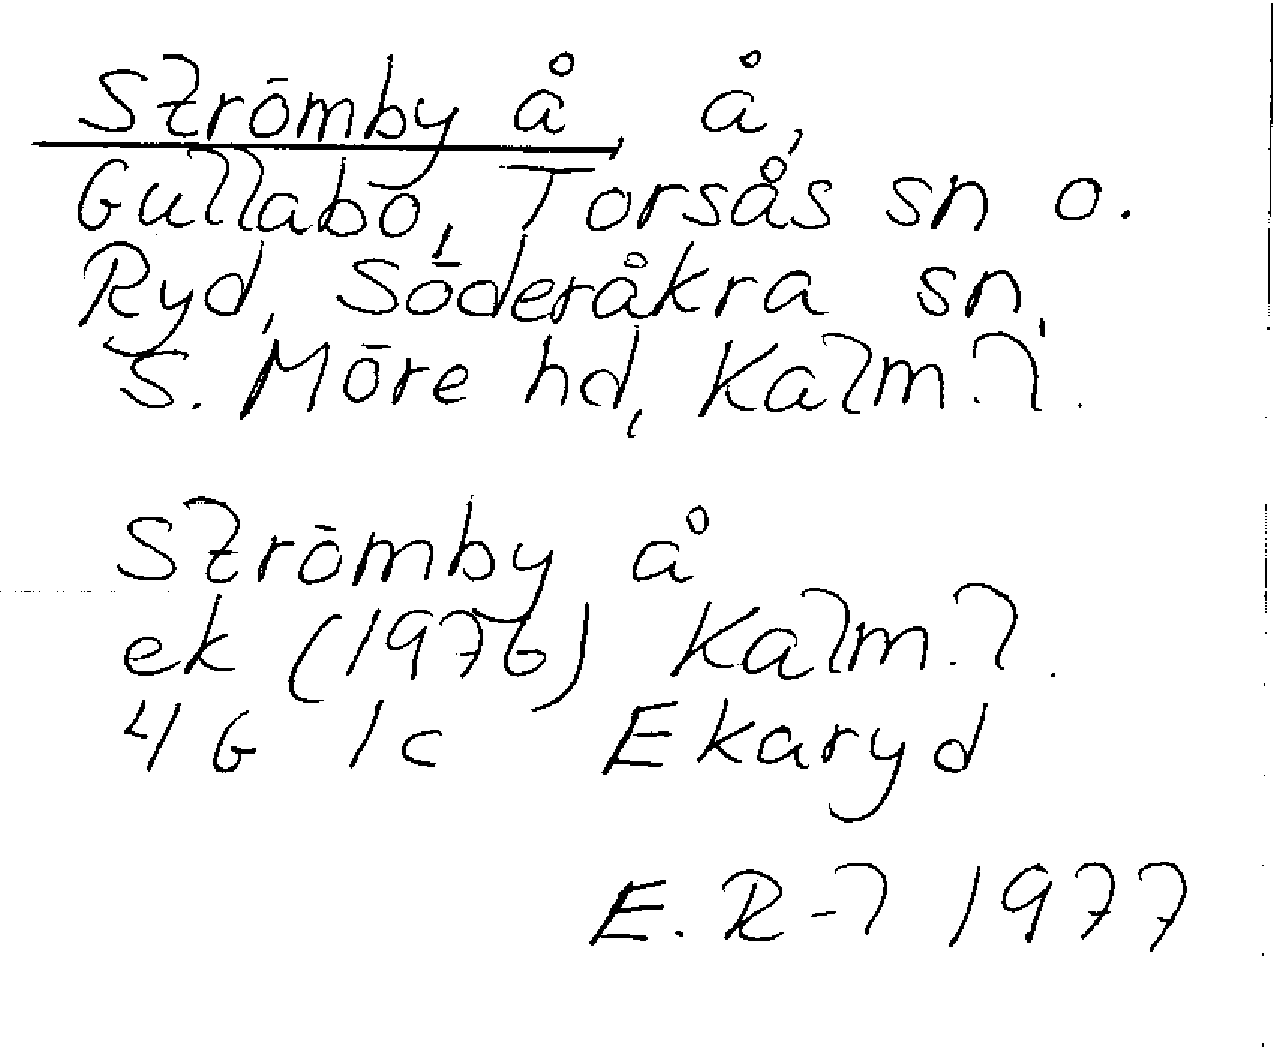 Strömby å, å,
Gullabo, Torsås sn o.
Ryd, Söderåkra sn,
S. Möre hd, Kalm. l.
Strömby å
ek (1976) Kalm. l.
4G 1c Ekaryd
E. R-l 1977